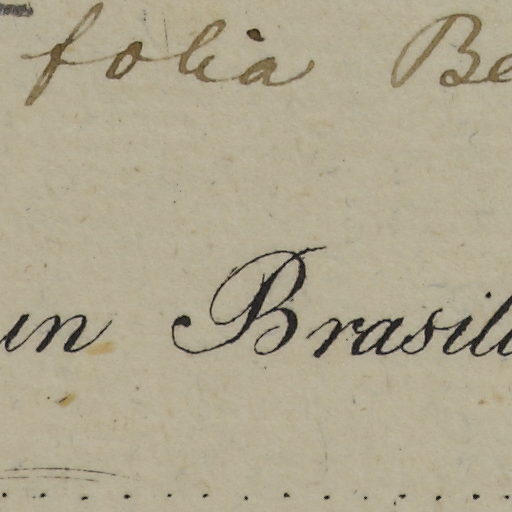 folia Be
un Brasili